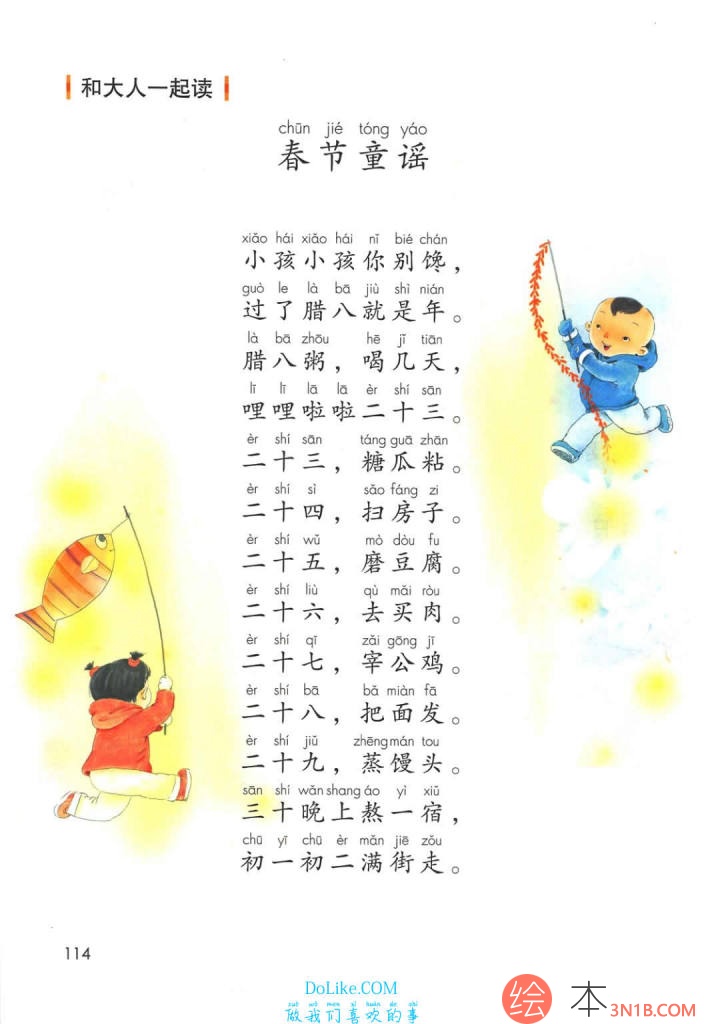 和大人一起读
chūn jié tóng yáo
春节童谣
xiǎo hái xiǎo hái nǐ bié chán
小孩小孩你别馋，
guò le là bā jiù shì nián
过了腊八就是年。
là bā zhōu hē jǐ tiān
腊八粥，喝几天，
lī lī lā lā èr shí sān
哩哩啦啦二十三。
èr shí sān táng guā zhān
二十三，糖瓜粘。
èr shí sì sǎo fáng zi
二十四，扫房子。
èr shí wǔ mò dòu fu
二十五，磨豆腐。
èr shí liù qù mǎi ròu
二十六，去买肉。
èr shí qī zǎi gōng jī
二十七，宰公鸡。
èr shí bā bǎ miàn fā
二十八，把面发。
èr shí jiǔ zhēng mán tou
二十九，蒸馒头。
sān shí wǎn shang áo yì xiǔ
三十晚上熬一宿，
chū yī chū èr mǎn jiē zǒu
初一初二满街走。
114
DoLike.COM
zuò wǒ men xǐ huān de shì
做我们喜欢的事
绘本 3N1B.COM